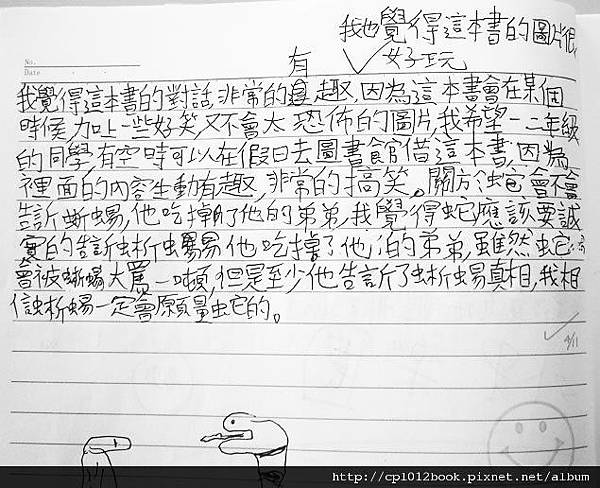 我也覺得這本書的圖片很
好玩
No.
Date
有
我覺得這本書的對話,非常的趣,因為這本書會在某個
時候,加上一些好笑又不會太恐佈的圖片,我希望一二年級
的同學,有空時可以在假日去圖書館借這本書,因為
裡面的內容生動有趣,非常的搞笑。關於蛇會不會
告訴蜥蜴,他吃掉了他的弟弟,我覺得蛇應該要誠
實的告訴蜥蜴他吃掉了他的弟弟,雖然蛇
會被蜥蜴大罵一頓,但是至少他告訴了蜥蜴真相,我相
信蜥蜴一定會原量蛇的。
4/11
http://cpl012book.pixnet.net/album